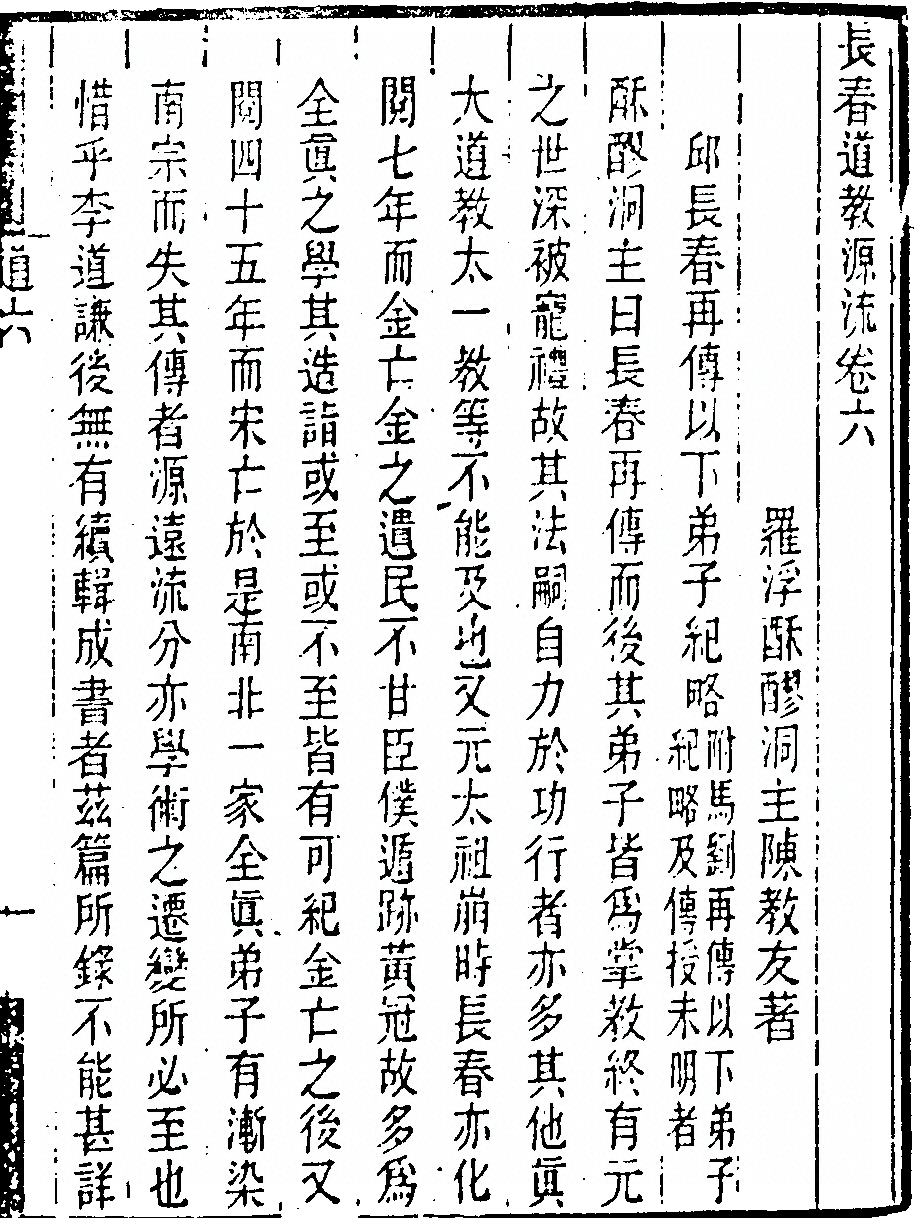 長春道教源流卷六
羅浮酥醪洞主陳教友著
邱長春再傳以下弟子紀略附馬劉再傳以下弟子紀略及傳授未明者
酥醪洞主曰長春再傳而後其弟子皆爲掌教終有元
之世深被寵禮故其法嗣自力於功行者亦多其他眞
大道教太一教等不能及也又元太祖崩時長春亦化
閱七年而金亡金之遺民不甘臣僕遁跡黃冠故多爲
全眞之學其造詣或至或不至皆有可紀金亡之後又
閱四十五年而宋亡於是南北一家全眞弟子有漸染
南宗而失其傳者源遠流分亦學術之遷變所必至也
惜乎李道謙後無有續輯成書者茲篇所錄不能甚詳
道六
一